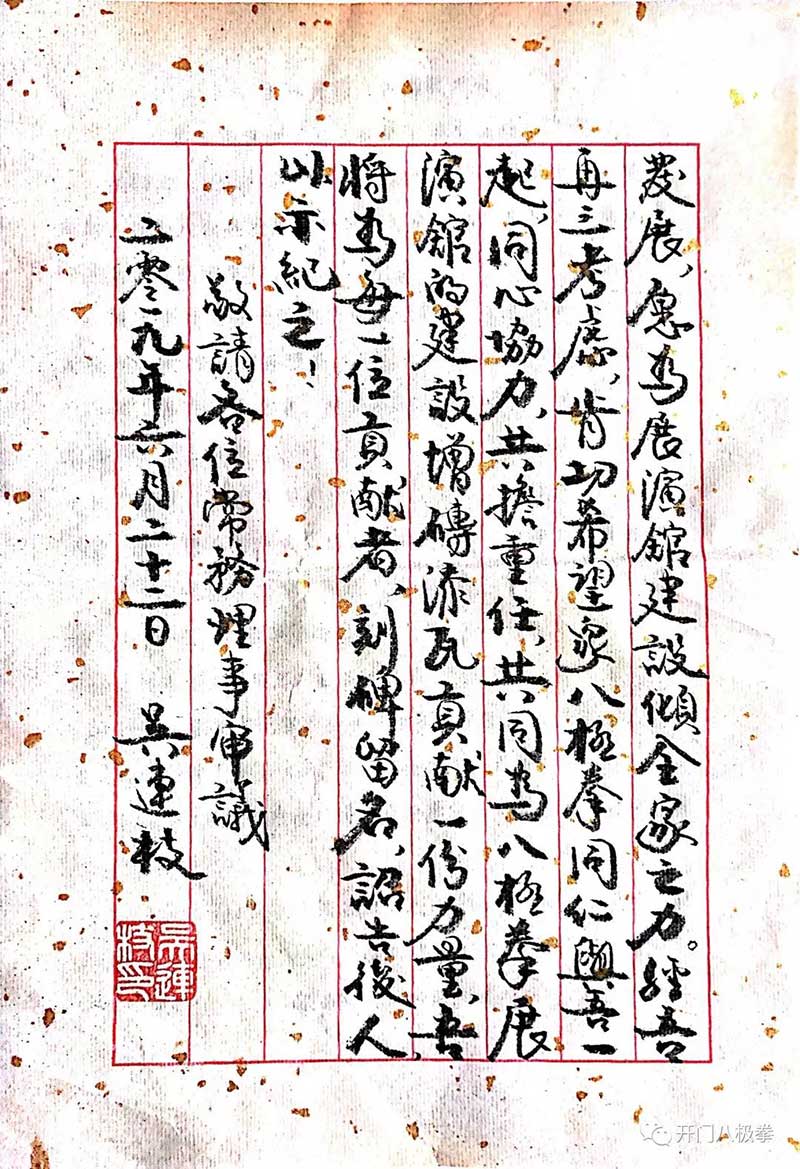 發展，愿為展演館建設傾全家之力。經吾
再三考慮，肯切希望家八極拳同仁與吾一
起，同心協力，共擔重任，共同為八極拳展
演館的建設增磚添瓦貢献一份力量，吾
將為每一位貢献者，刻碑留名，詔告後人，
以示紀之！
敬請各位常務理事审議
二零一九年六月二十二日 吴連枝
吴連枝印
开门八极拳